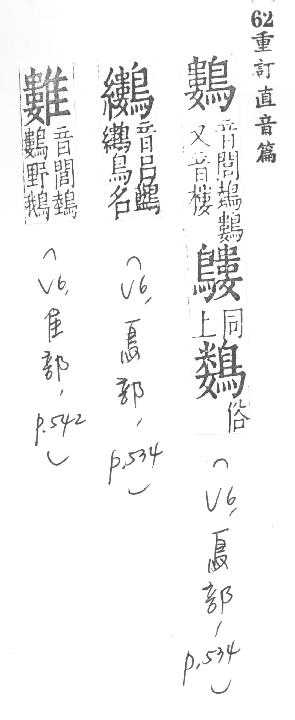 62重訂直音篇
鷜 音閭鵱鷜 又音樓 同上 俗
(V6, 鳥部, p.534)
音呂 鳥名
(V6, 鳥部, p.534)
音閭鵱鷜野鵝
(V6, 隹部, p.542)